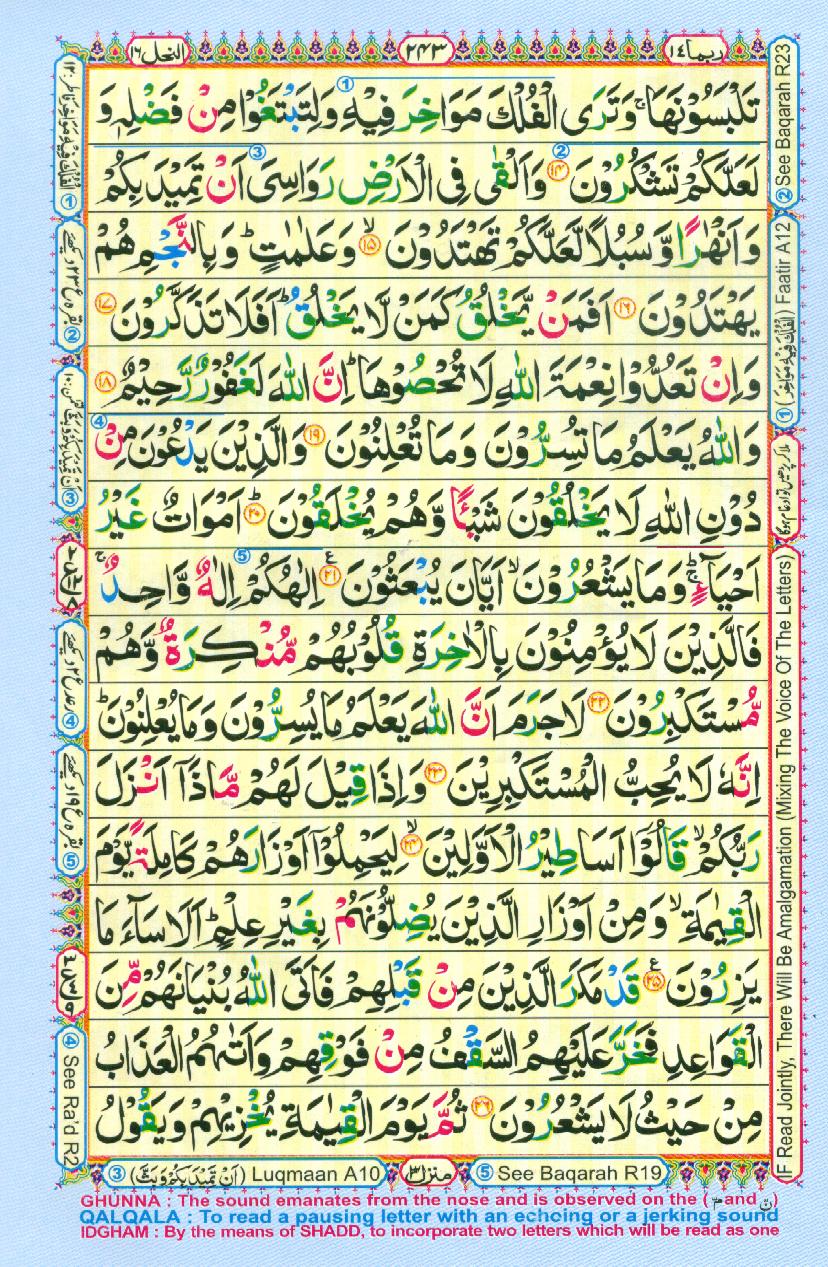 النحل ١٦
٢٤٣
ربما ١٤
تَلْبَسُوْنَهَا ۚ وَتَرَى الْفُلْكَ مَوَاخِرَ فِيْهِ وَلِتَبْتَغُوْا مِنْ فَضْلِهٖ وَ
لَعَلَّكُمْ تَشْكُرُوْنَ ۝١٤ وَاَلْقٰى فِى الْاَرْضِ رَوَاسِىَ اَنْ تَمِيْدَ بِكُمْ
وَاَنْهٰرًا وَّسُبُلًا لَّعَلَّكُمْ تَهْتَدُوْنَ ۙ۝١٥ وَعَلٰمٰتٍ ؕ وَبِالنَّجْمِ هُمْ
يَهْتَدُوْنَ ۝١٦ اَفَمَنْ يَّخْلُقُ كَمَنْ لَّا يَخْلُقُ ؕ اَفَلَا تَذَكَّرُوْنَ ۝١٧
وَاِنْ تَعُدُّوْا نِعْمَةَ اللّٰهِ لَا تُحْصُوْهَا ؕ اِنَّ اللّٰهَ لَغَفُوْرٌ رَّحِيْمٌ ۝١٨
وَاللّٰهُ يَعْلَمُ مَا تُسِرُّوْنَ وَمَا تُعْلِنُوْنَ ۝١٩ وَالَّذِيْنَ يَدْعُوْنَ مِنْ
دُوْنِ اللّٰهِ لَا يَخْلُقُوْنَ شَيْـًٔا وَّهُمْ يُخْلَقُوْنَ ؕ۝٢٠ اَمْوَاتٌ غَيْرُ
اَحْيَآءٍ ۚ وَمَا يَشْعُرُوْنَ ۙ اَيَّانَ يُبْعَثُوْنَ ۝٢١ اِلٰهُكُمْ اِلٰهٌ وَّاحِدٌ ۚ
فَالَّذِيْنَ لَا يُؤْمِنُوْنَ بِالْاٰخِرَةِ قُلُوْبُهُمْ مُّنْكِرَةٌ وَّهُمْ
مُّسْتَكْبِرُوْنَ ۝٢٢ لَا جَرَمَ اَنَّ اللّٰهَ يَعْلَمُ مَا يُسِرُّوْنَ وَمَا يُعْلِنُوْنَ ؕ
اِنَّهٗ لَا يُحِبُّ الْمُسْتَكْبِرِيْنَ ۝٢٣ وَاِذَا قِيْلَ لَهُمْ مَّاذَآ اَنْزَلَ
رَبُّكُمْ ۙ قَالُوْٓا اَسَاطِيْرُ الْاَوَّلِيْنَ ۙ۝٢٤ لِيَحْمِلُوْٓا اَوْزَارَهُمْ كَامِلَةً يَّوْمَ
الْقِيٰمَةِ ۙ وَمِنْ اَوْزَارِ الَّذِيْنَ يُضِلُّوْنَهُمْ بِغَيْرِ عِلْمٍ ؕ اَلَا سَآءَ مَا
يَزِرُوْنَ ۝٢٥ قَدْ مَكَرَ الَّذِيْنَ مِنْ قَبْلِهِمْ فَاَتَى اللّٰهُ بُنْيَانَهُمْ مِّنَ
الْقَوَاعِدِ فَخَرَّ عَلَيْهِمُ السَّقْفُ مِنْ فَوْقِهِمْ وَاَتٰىهُمُ الْعَذَابُ
مِنْ حَيْثُ لَا يَشْعُرُوْنَ ۝٢٦ ثُمَّ يَوْمَ الْقِيٰمَةِ يُخْزِيْهِمْ وَيَقُوْلُ
② See Baqarah R23
① (الْفُلْكَ فِيْهِ مَوَاخِرَ) Faatir A12
IF Read Jointly, There Will Be Amalgamation (Mixing The Voice Of The Letters)
④ See Ra'd R2
③ (اَنْ تَمِيْدَ بِكُمْ وَبَثَّ) Luqmaan A10
منزل ٣
⑤ See Baqarah R19
GHUNNA : The sound emanates from the nose and is observed on the (مّ and نّ)
QALQALA : To read a pausing letter with an echoing or a jerking sound
IDGHAM : By the means of SHADD, to incorporate two letters which will be read as one